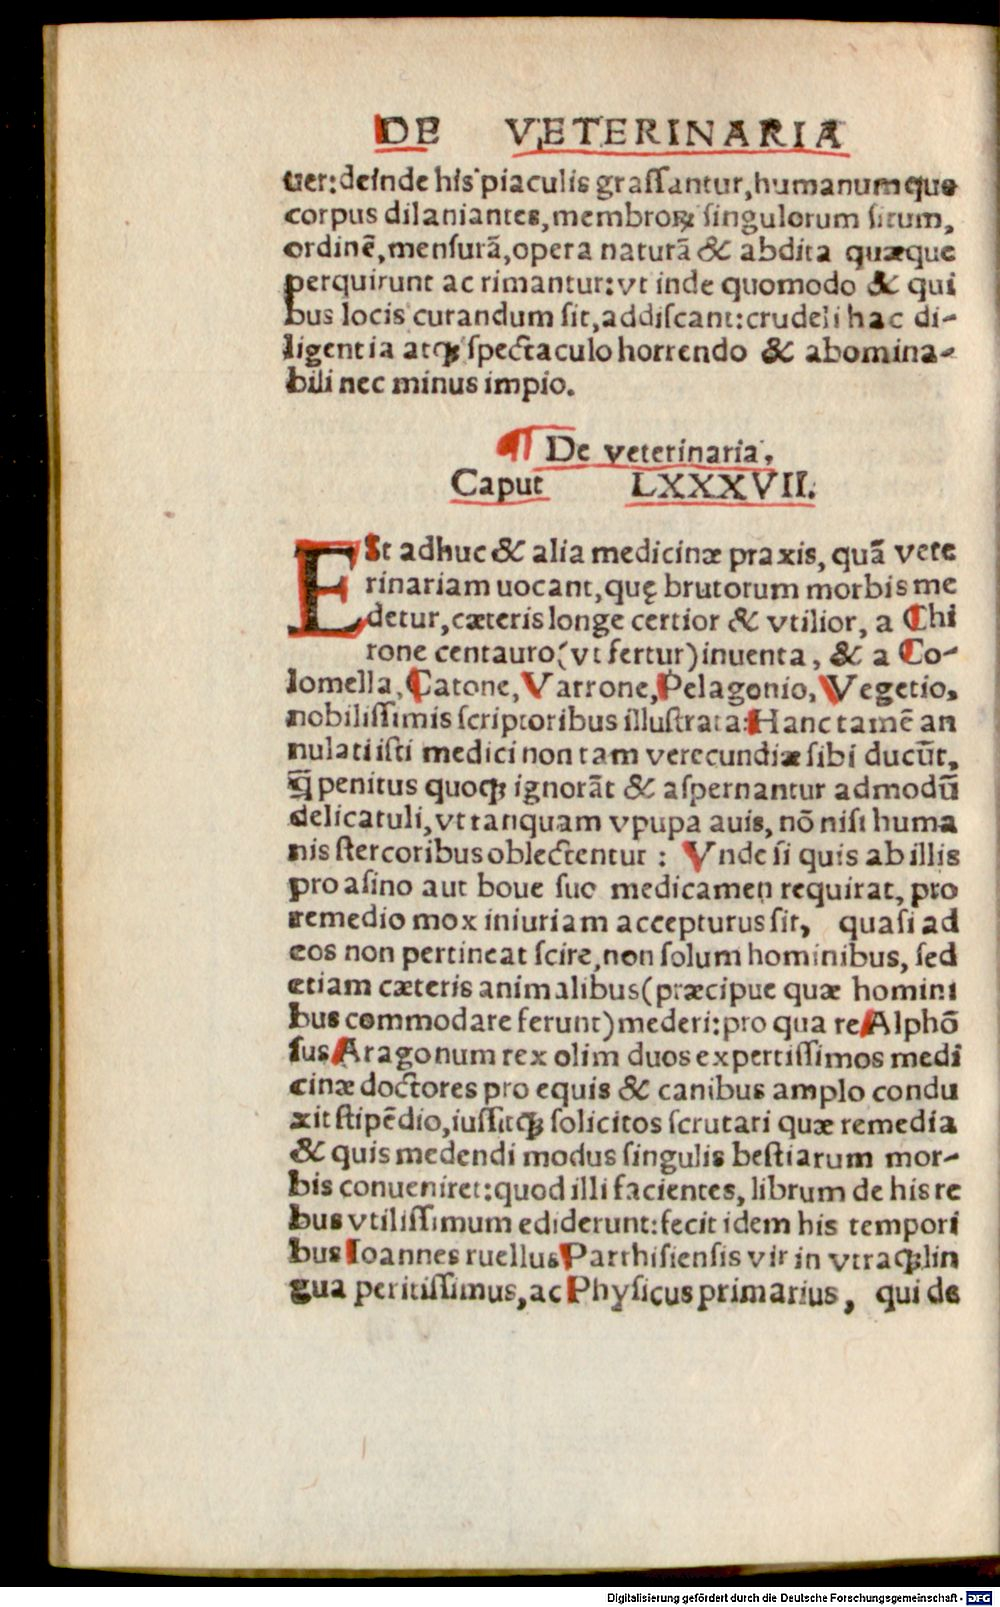 DE VETERINARIA
uer:deinde his piaculis graſſantur,humanumque
corpus dilaniantes,membroꝝ ſingulorum ſitum,
ordinē,menſurā,opera naturā & abdita quæque
perquirunt ac rimantur:vt inde quomodo & qui
bus locis curandum ſit,addiſcant:crudeli hac di-
ligentia atqꝫ ſpectaculo horrendo & abomina-
bili nec minus impio.
¶ De veterinaria,
Caput LXXXVII.
ESt adhuc & alia medicinæ praxis, quā vete
rinariam uocant,quę brutorum morbis me
detur,cæteris longe certior & vtilior, a Chi
rone centauro(vt fertur)inuenta, & a Co-
lomella,Catone,Varrone,Pelagonio,Vegetio,
nobiliſſimis ſcriptoribus illuſtrata:Hanc tamē an
nulati iſti medici non tam verecundiæ ſibi ducūt,
q̄ penitus quoqꝫ ignorāt & aſpernantur admodū
delicatuli,vt tanquam vpupa auis, nō niſi huma
nis ſtercoribus oblectentur : Vnde ſi quis ab illis
pro aſino aut boue ſuo medicamen requirat, pro
remedio mox iniuriam accepturus ſit, quaſi ad
eos non pertineat ſcire,non ſolum hominibus, ſed
etiam cæteris animalibus(præcipue quæ homini
bus commodare ferunt)mederi:pro qua re Alphō
ſus Aragonum rex olim duos expertiſſimos medi
cinæ doctores pro equis & canibus amplo condu
xit ſtipēdio,iuſſitqꝫ ſolicitos ſcrutari quæ remedia
& quis medendi modus ſingulis beſtiarum mor-
bis conueniret:quod illi facientes, librum de his re
bus vtiliſſimum ediderunt:fecit idem his tempori
bus Ioannes ruellus Parrhiſienſis vir in vtraqꝫ lin
gua peritiſſimus,ac Phyſicus primarius, qui de
Digitalisierung gefördert durch die Deutsche Forschungsgemeinschaft - DFG